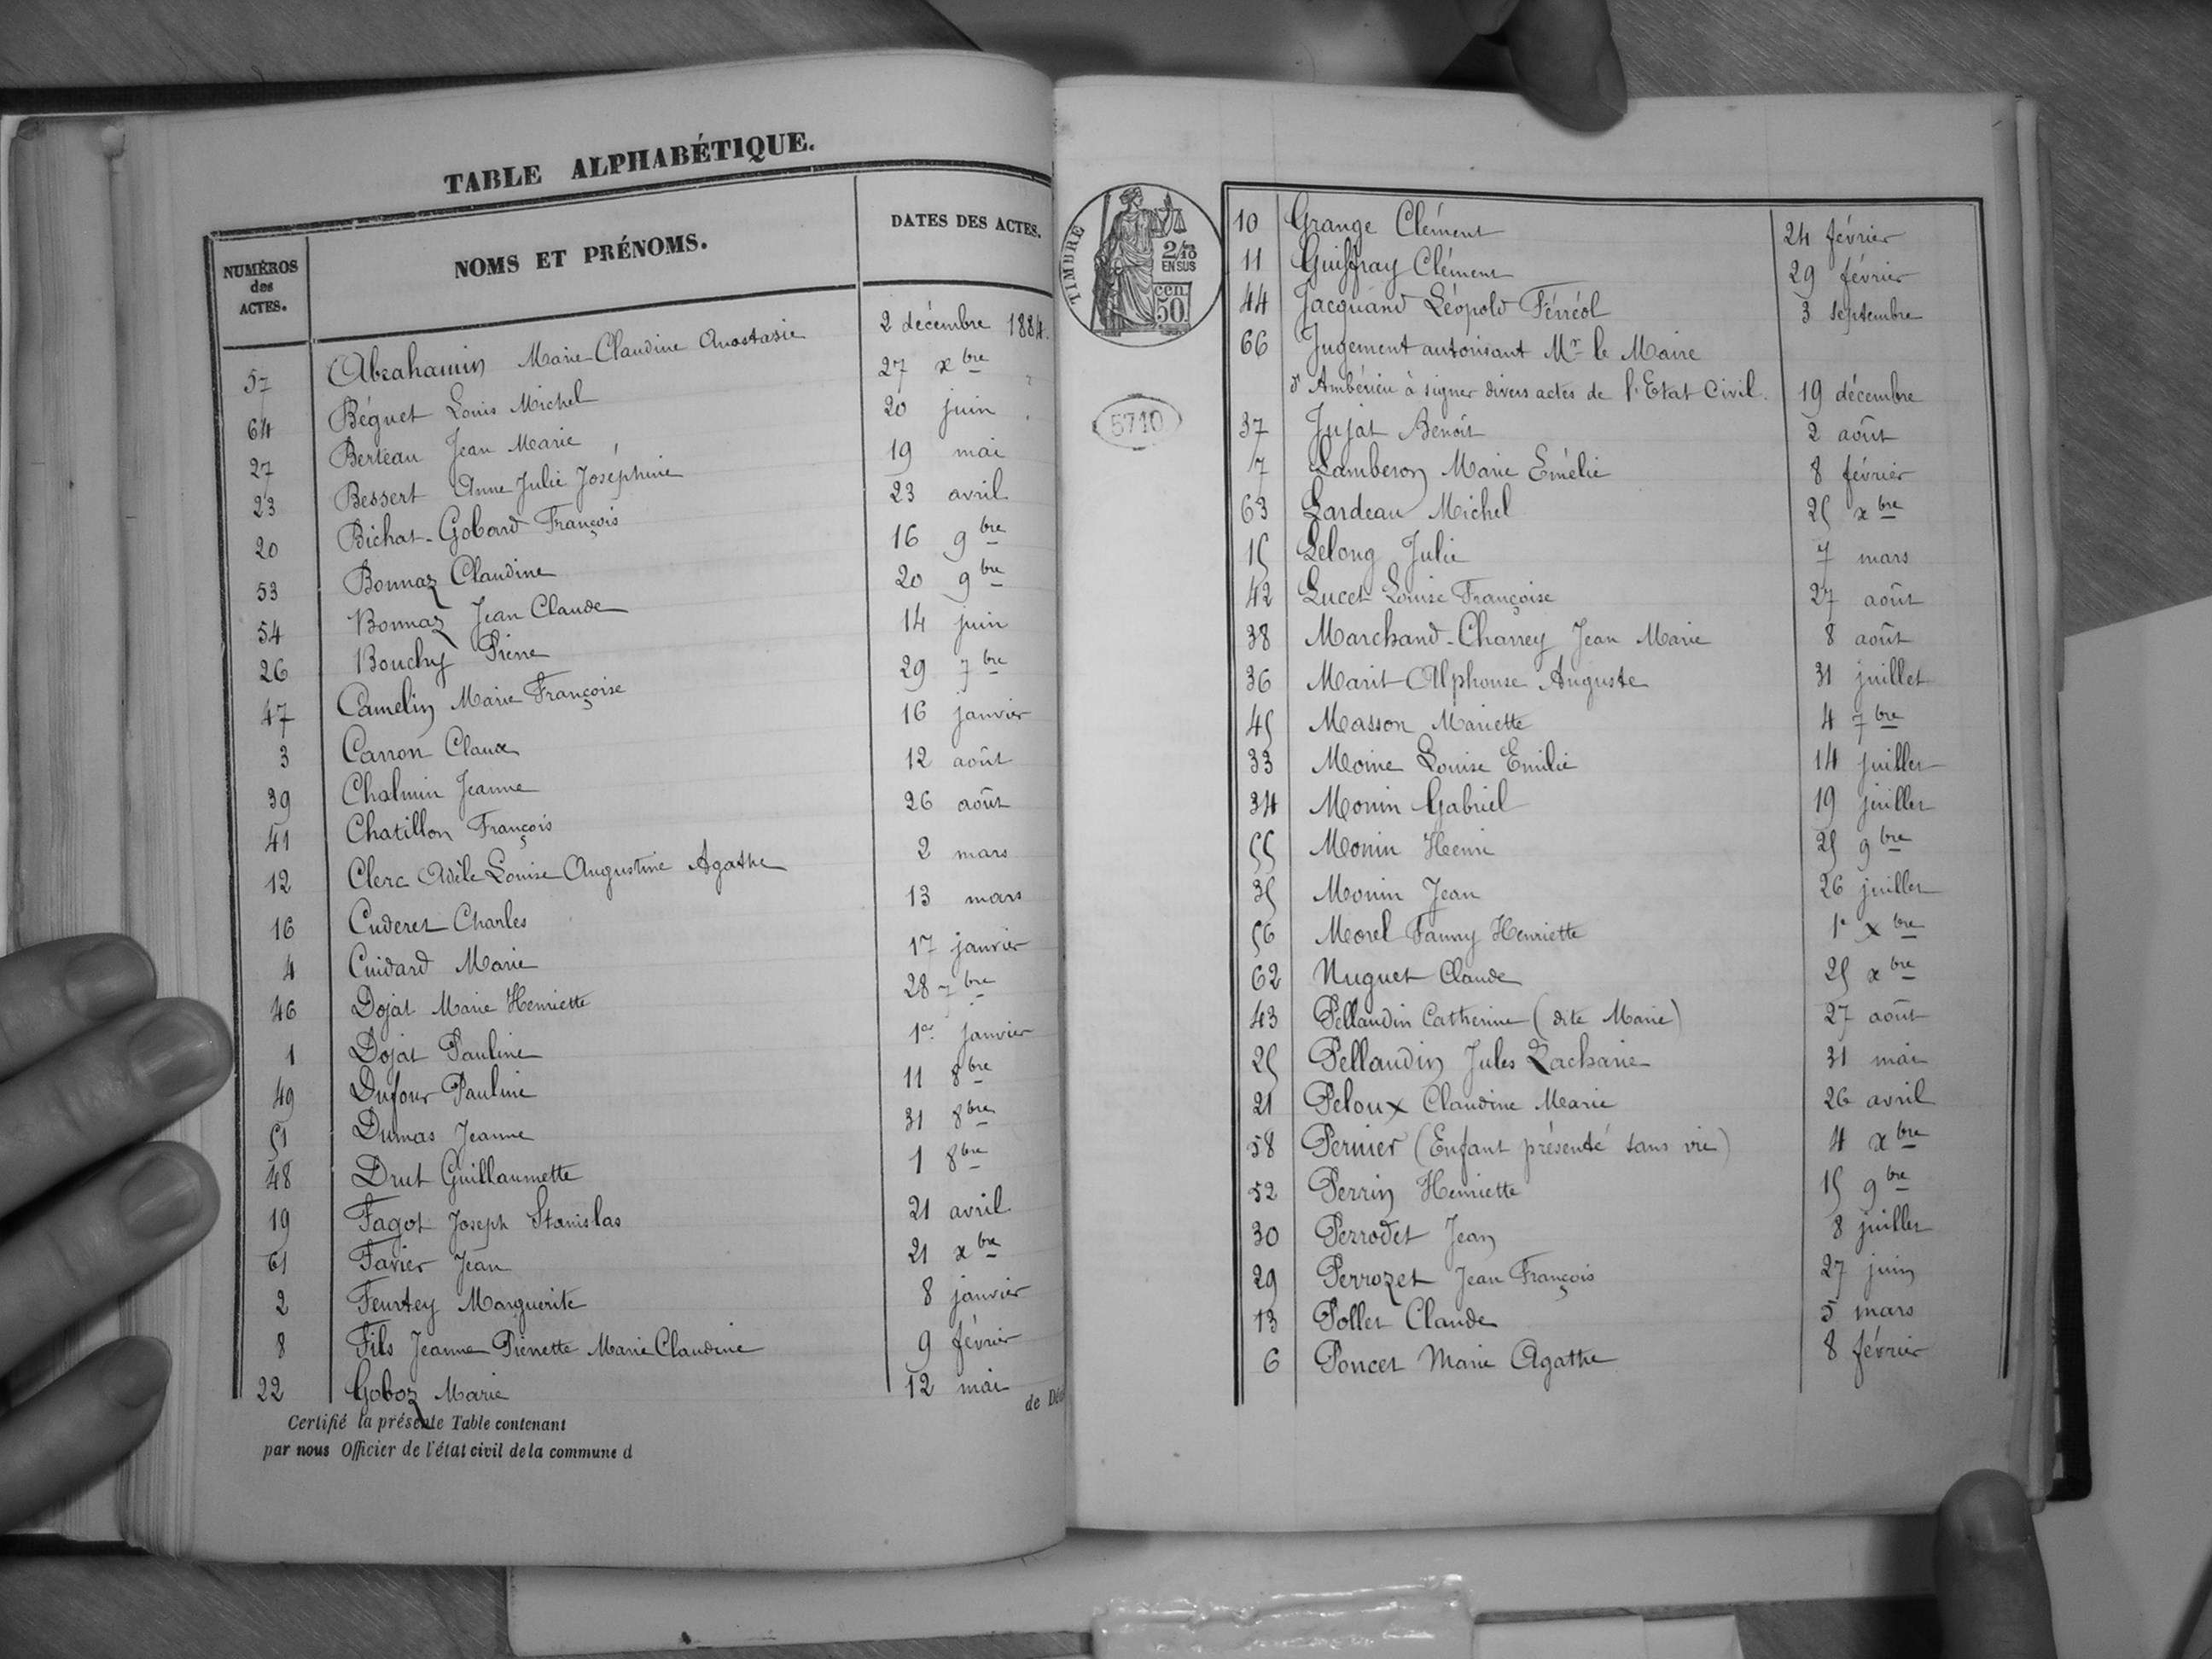 TABLE ALPHABÉTIQUE.
NUMÉROS des ACTES. NOMS ET PRÉNOMS. DATES DES ACTES.
57 Abrahamin Marie Claudine Anastasie 2 décembre 1884.
64 Béguet Louis Michel 27 xbre
27 Berteau Jean Marie 20 juin
23 Bessert Anne Julie Joséphine 19 mai
20 Bichat-Gobard François 23 avril
53 Bonnaz Claudine 16 9bre
54 Bonnaz Jean Claude 20 9bre
26 Bouchy Pierre 14 juin
47 Camelin Marie Françoise 29 7bre
3 Carron Claude 16 janvier
39 Chalmin Jeanne 12 août
41 Chatillon François 26 août
12 Clerc Adèle Louise Augustine Agathe 2 mars
16 Cuderet Charles 13 mars
4 Cuidard Marie 17 janvier
46 Dojat Marie Henriette 28 7bre
1 Dojat Pauline 1er janvier
49 Dufour Pauline 11 8bre
51 Dumas Jeanne 31 8bre
48 Drut Guillaumette 1 8bre
19 Fagot Joseph Stanislas 21 avril
61 Favier Jean 21 xbre
2 Feurtey Marguerite 8 janvier
8 Fils Jeanne Pierrette Marie Claudine 9 février
22 Goboz Marie 12 mai
Certifié la présente Table contenant de
par nous Officier de l'état civil de la commune d
TIMBRE
2/10 EN SUS
50 cen
5710
10 Grange Clément 24 février
11 Guiffray Clément 29 février
44 Jacquand Léopold Férréol 3 septembre
66 Jugement autorisant Mr le Maire
d'Ambérieu à signer divers actes de l'Etat Civil. 19 décembre
37 Jujat Benoît 2 août
7 Lamberon Marie Emélie 8 février
63 Lardeau Michel 25 xbre
15 Lelong Julie 7 mars
42 Lucet Louise Françoise 27 août
38 Marchand-Charrey Jean Marie 8 août
36 Marit Alphonse Auguste 31 juillet
45 Masson Mariette 4 7bre
33 Moine Louise Emilie 14 juillet
34 Monin Gabriel 19 juillet
55 Monin Henri 25 9bre
35 Monin Jean 26 juillet
56 Morel Fanny Henriette 1e xbre
62 Nuguet Claude 25 xbre
43 Pellaudin Catherine (dite Marie) 27 août
25 Pellaudin Jules Zacharie 31 mai
21 Peloux Claudine Marie 26 avril
58 Pernier (Enfant présenté sans vie) 4 xbre
52 Perrin Henriette 15 9bre
30 Perrodet Jean 8 juillet
29 Perrozet Jean François 27 juin
13 Pollet Claude 5 mars
6 Poncet Marie Agathe 8 février